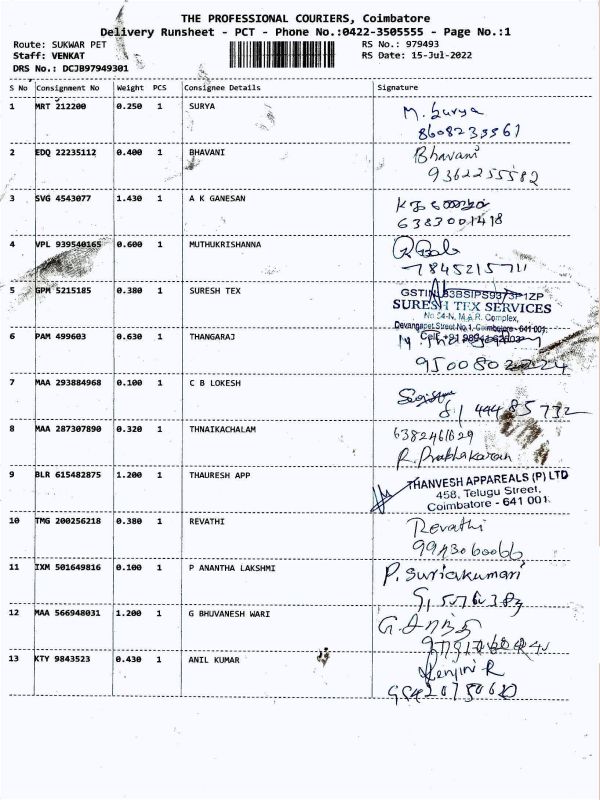 THE PROFESSIONAL COURIERS, Coimbatore
Delivery Runsheet - PCT - Phone No.:0422-3505555 - Page No.:1
Route: SUKWAR PET RS No.: 979493
Staff: VENKAT RS Date: 15-Jul-2022
DRS No.: DCJB97949301
S No Consignment No Weight PCS Consignee Details Signature
1 MRT 212200 0.250 1 SURYA M. Surya
8608233361
2 EDQ 22235112 0.400 1 BHAVANI Bhavani
9362255582
3 SVG 4543077 1.430 1 A K GANESAN
6383001418
4 VPL 939540165 0.600 1 MUTHUKRISHANNA
7845215711
5 GPM 5215185 0.380 1 SURESH TEX GSTIN
SURESH TEX SERVICES
No 54-N, M.A.R. Complex,
Devangapet Street No.1, Coimbatore - 641 001.
6 PAM 499603 0.630 1 THANGARAJ
9500802224
7 MAA 293884968 0.100 1 C B LOKESH
8 MAA 287307890 0.320 1 THNAIKACHALAM 6382461029
R. Prabhakaran
9 BLR 615482875 1.200 1 THAURESH APP THANVESH APPAREALS (P) LTD
458, Telugu Street,
Coimbatore - 641 001.
10 TMG 200256218 0.380 1 REVATHI Revathi
9943060066
11 IXM 501649816 0.100 1 P ANANTHA LAKSHMI P. Suriakumari
12 MAA 566948031 1.200 1 G BHUVANESH WARI
13 KTY 9843523 0.430 1 ANIL KUMAR